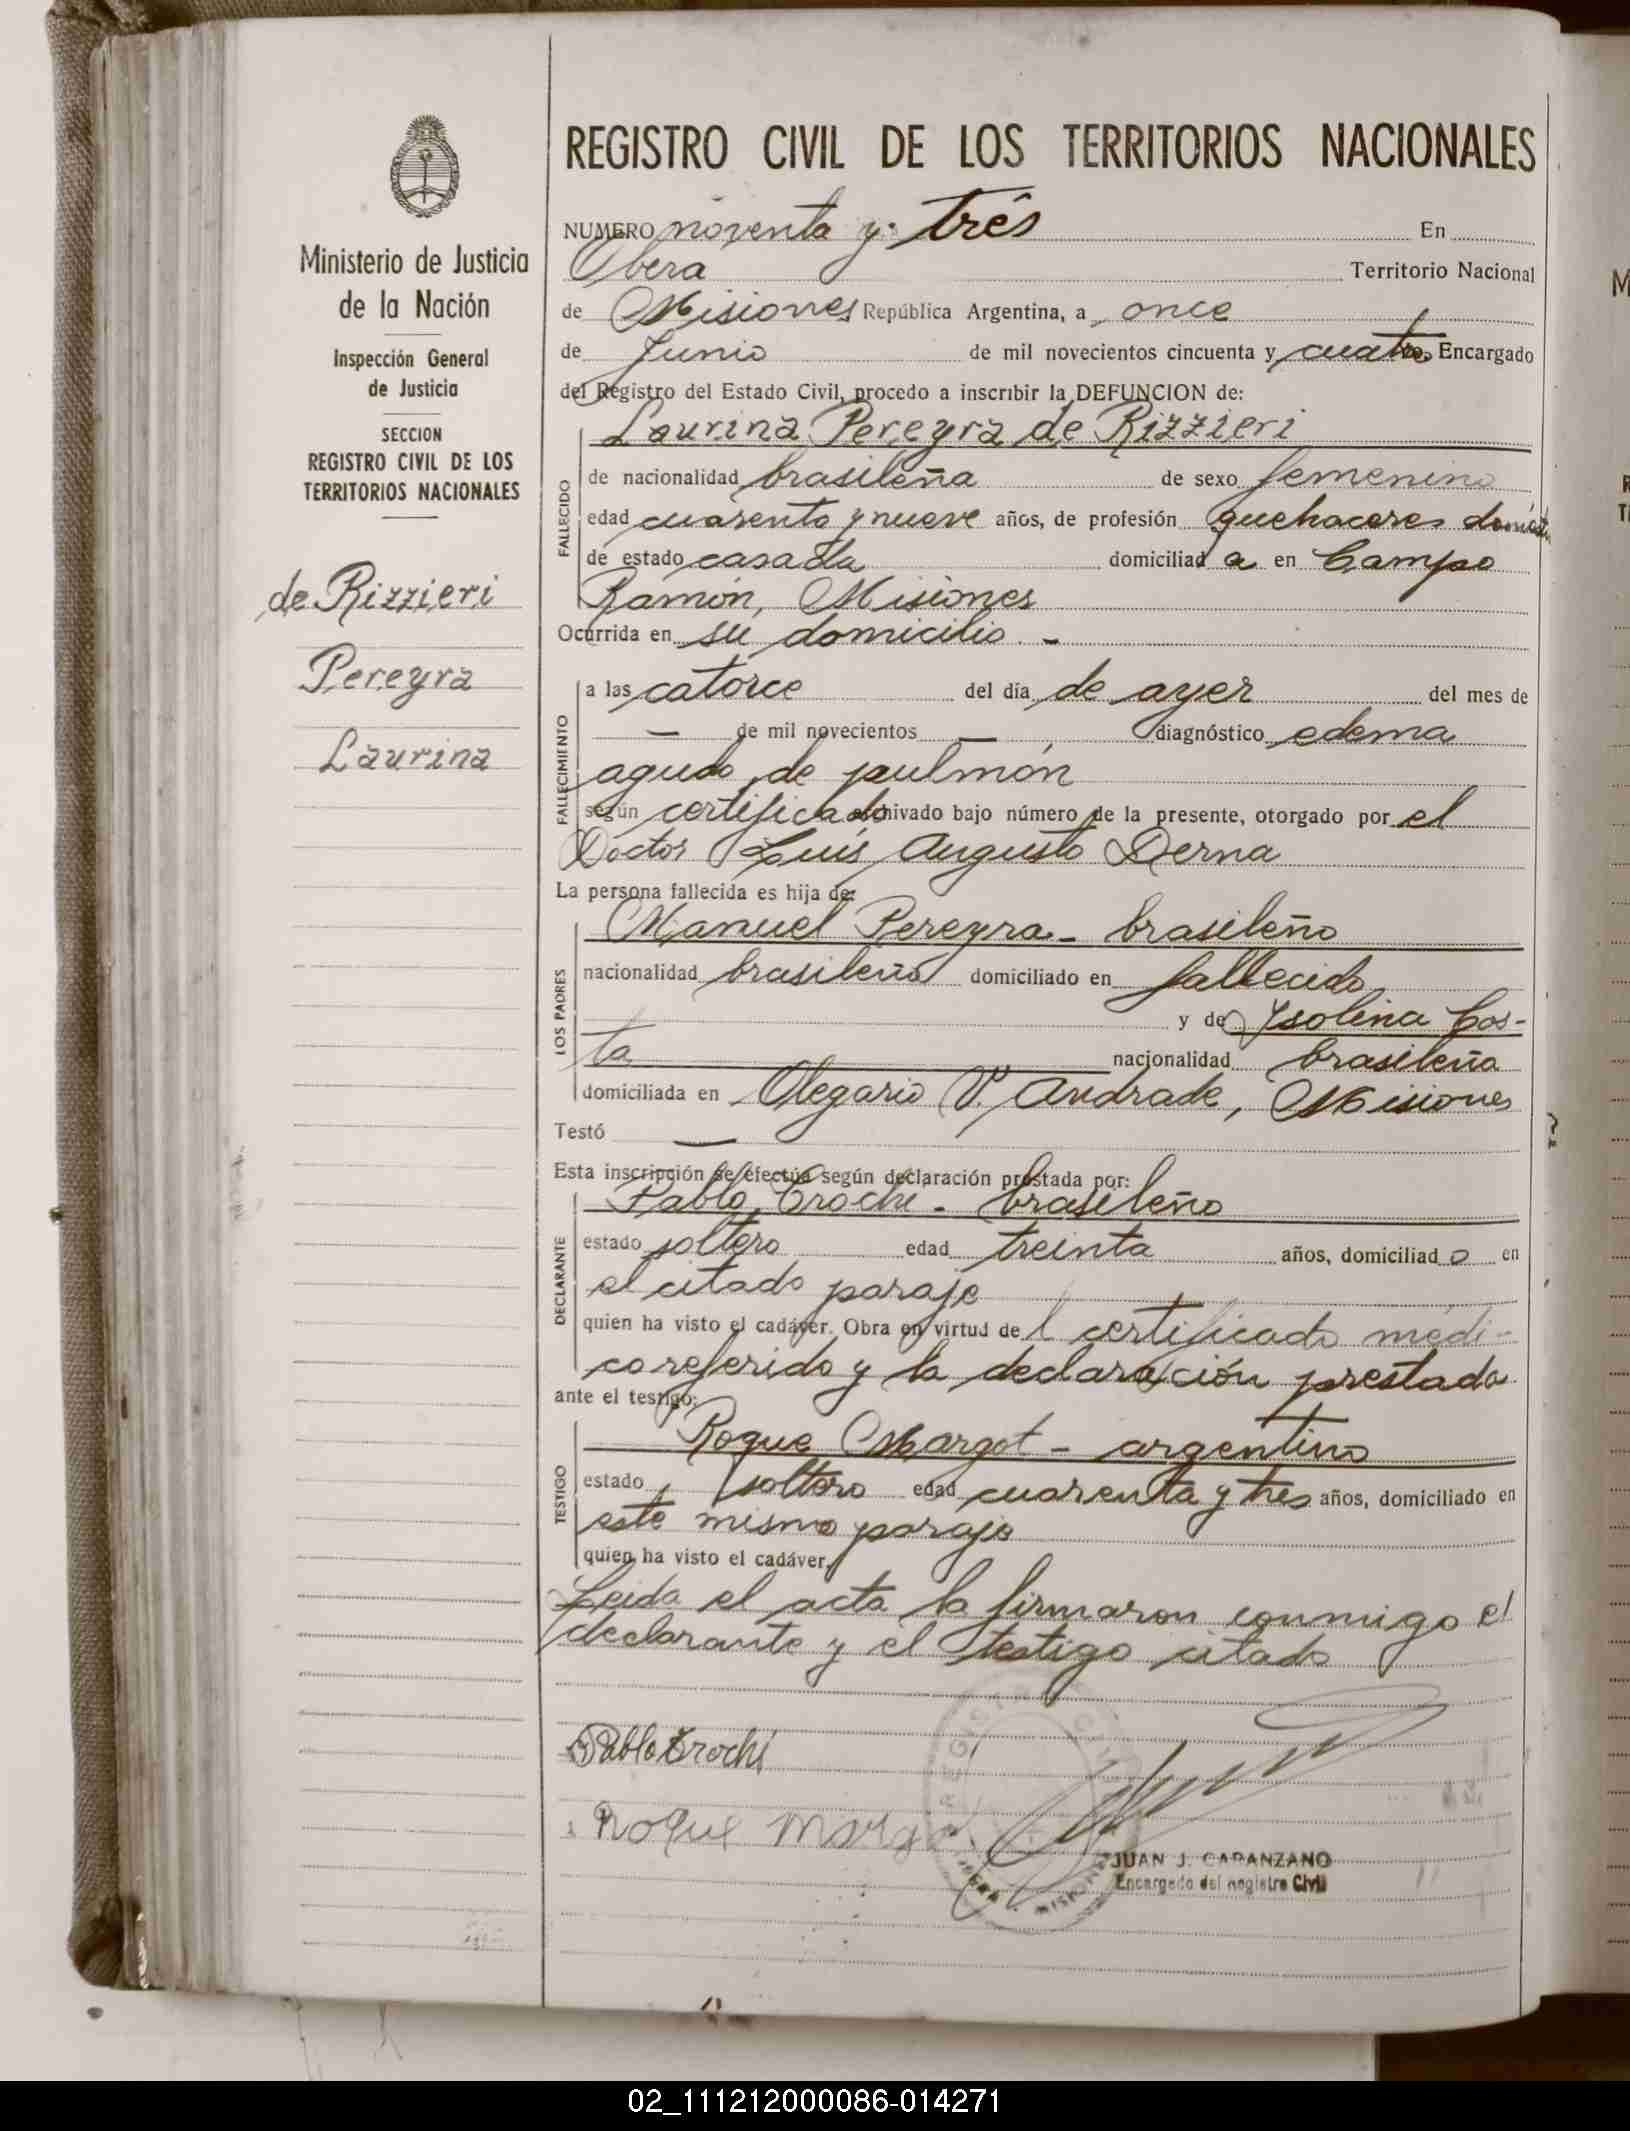 REGISTRO CIVIL DE LOS TERRITORIOS NACIONALES
Ministerio de Justicia
de la Nación
Inspección General
de Justicia
SECCION
REGISTRO CIVIL DE LOS
TERRITORIOS NACIONALES
de Rizzieri
Pereyra
Laurina
NUMERO noventa y tres En
Obera Territorio Nacional
de Misiones República Argentina, a once
de Junio de mil novecientos cincuenta y cuatro Encargado
del Registro del Estado Civil, procedo a inscribir la DEFUNCION de:
Laurina Pereyra de Rizzieri
FALLECIDO
de nacionalidad brasileña de sexo femenino
edad cuarenta y nueve años, de profesión quehaceres domést
de estado casada domiciliad a en Campo
Ramón, Misiones
Ocurrida en su domicilio. -
FALLECIMIENTO
a las catorce del día de ayer del mes de
— de mil novecientos — diagnóstico edema
agudo de pulmón
según certificado archivado bajo número de la presente, otorgado por el
Doctor Luis Augusto Derna
La persona fallecida es hija de:
LOS PADRES
Manuel Pereyra - brasileño
nacionalidad brasileña domiciliado en fallecido
y de Ysolina Cos-
ta nacionalidad brasileña
domiciliada en Olegario V. Andrade, Misiones
Testó —
Esta inscripción se efectúa según declaración prestada por:
DECLARANTE
Pablo Trochi - brasileño
estado soltero edad treinta años, domiciliad o en
el citado paraje
quien ha visto el cadáver. Obra en virtud de l certificado médi-
co referido y la declaración prestada
ante el testigo:
TESTIGO
Roque Margot - argentino
estado soltero edad cuarenta y tres años, domiciliado en
este mismo paraje
quien ha visto el cadáver.
Leida el acta la firmaron conmigo el
declarante y el testigo citado
Pablo Trochi
Roque Marg
JUAN J. CAPANZANO
Encargado del Registro Civil
02_111212000086-014271